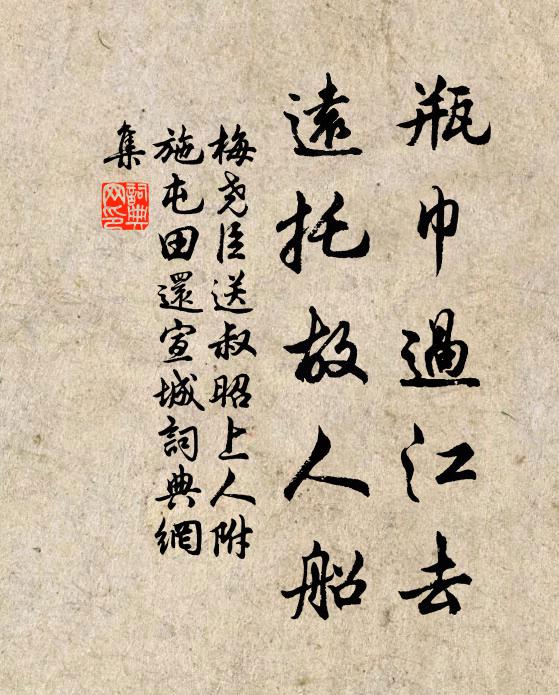 瓶巾過江去
遠托故人船
梅堯臣送叔昭上人附
施屯田還宣城詞典網
集
詞典
网印